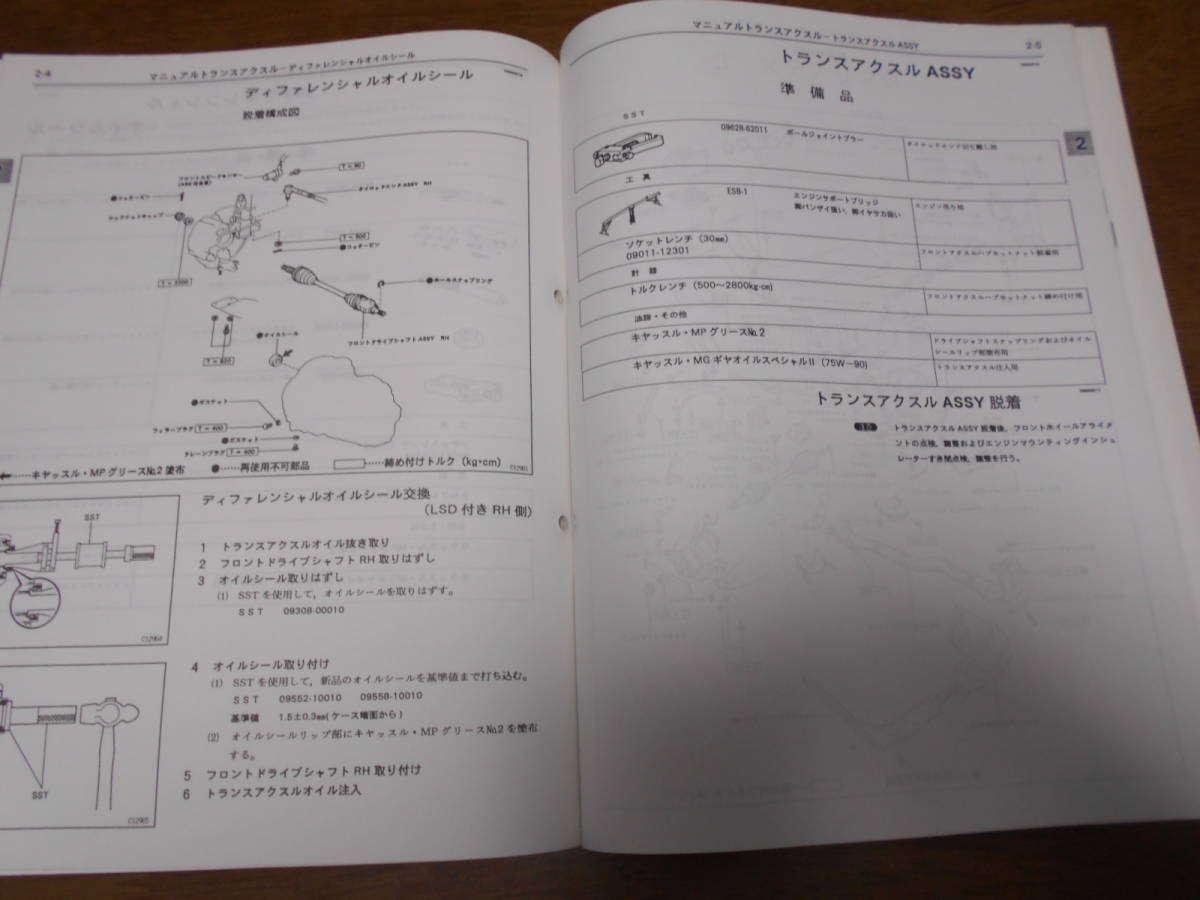 2-4
マニュアルトランスアクスル－ディファレンシャルオイルシール
ディファレンシャルオイルシール
脱着構成図
フロントスピードセンサー
T＝80
タイロッドエンドASSY RH
T＝500
コッターピン
ボールスナップリング
フロントドライブシャフトASSY RH
オイルシール
ガスケット
フィラープラグ T＝400
ガスケット
ドレーンプラグ T＝400
……キヤッスル・MPグリースNo.2塗布 ●……再使用不可部品 ……締め付けトルク（kg・cm）
C12963
ディファレンシャルオイルシール交換
（LSD付きRH側）
SST
C12964
1 トランスアクスルオイル抜き取り
2 フロントドライブシャフトRH取りはずし
3 オイルシール取りはずし
(1) SSTを使用して，オイルシールを取りはずす。
SST 09308-00010
4 オイルシール取り付け
(1) SSTを使用して，新品のオイルシールを基準値まで打ち込む。
SST 09552-10010 09558-10010
基準値 1.5±0.3mm(ケース端面から)
(2) オイルシールリップ部にキヤッスル・MPグリースNo.2を塗布
する。
5 フロントドライブシャフトRH取り付け
6 トランスアクスルオイル注入
SST
C12965
マニュアルトランスアクスル－トランスアクスルASSY
2-5
トランスアクスルASSY
準備品
2
SST
09628-62011 ボールジョイントプラー タイロッドエンド切り離し用
工具
ESB-1 エンジンサポートブリッジ エンジン吊り用
㈱バンザイ扱い、㈱イヤサカ扱い
ソケットレンチ（30mm） フロントアクスルハブセットナット脱着用
09011-12301
計器
トルクレンチ（500～2800kg・cm） フロントアクスルハブセットナット締め付け用
油脂・その他
キヤッスル・MPグリースNo.2 ドライブシャフトスナップリングおよびオイル
シールリップ部塗布用
キヤッスル・MGギヤオイルスペシャルII（75W－90） トランスアクスル注入用
トランスアクスルASSY脱着
トランスアクスルASSY脱着後，フロントホイールアライメ
ントの点検，調整およびエンジンマウンティングインシュ
レーターすき間点検，調整を行う。